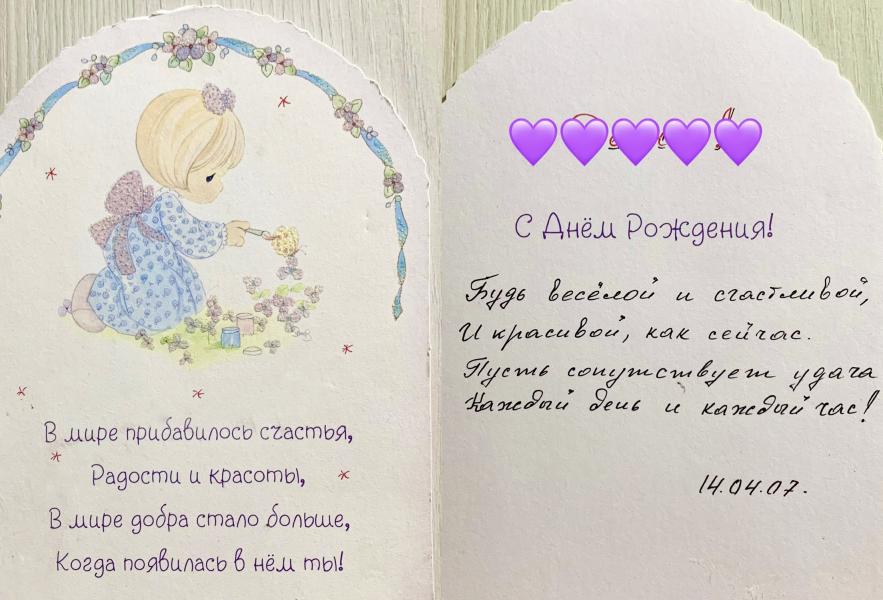 В мире прибавилось счастья,
Радости и красоты,
В мире добра стало больше,
Когда появилась в нём ты!
С Днём Рождения!
Будь весёлой и счастливой,
И красивой, как сейчас.
Пусть сопутствует удача
Каждый день и каждый час!
14.04.07.